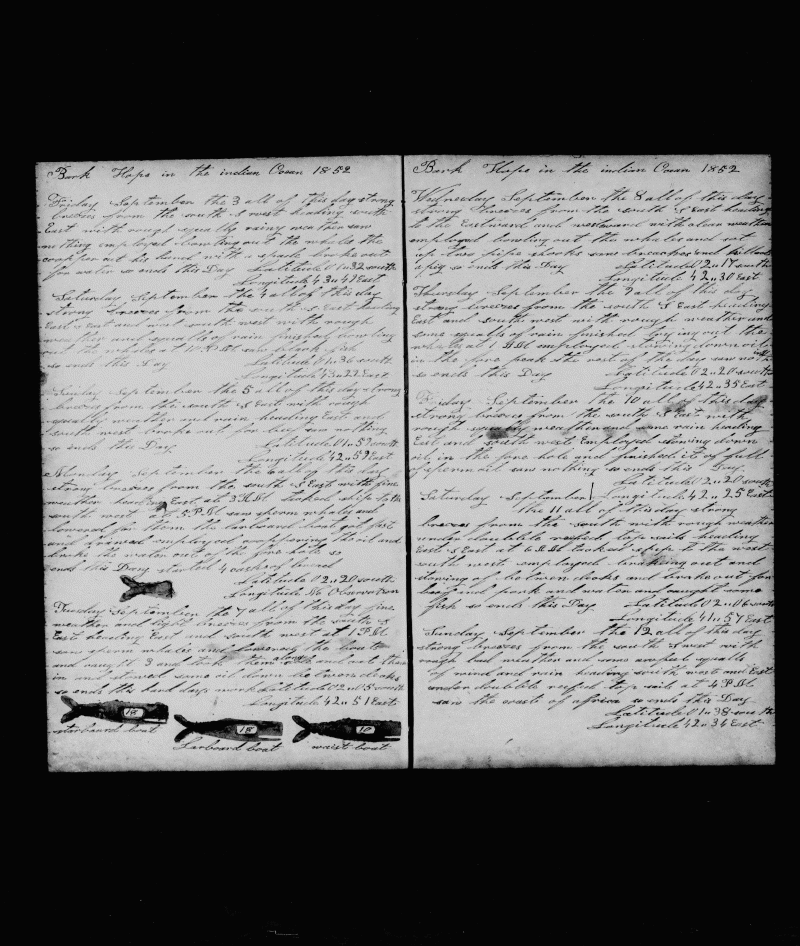 Bark Hope in the indian Ocean 1852
Friday September the 3 all of this day strong
breezes from the south & west heading south
East with rough squally rainy weather saw
nothing employed bowling out the whale the
cooper cut his hand with a spade broke out
for water so ends this Day Latitude 01"32 south
Longitude 43"41 East
Saturday September the 4 all of this day
strong breezes from the south & East heading
East & East and west south west with rough
weather and squalls of rain finished bowling
out the whales at
so ends this Day Latitude 01"36 south
Longitude 43"22 East
Sunday September the 5 all of this day strong
breezes from the south & East with rough
squally weather and rain heading East and
south west broke out for beef saw nothing
so ends this Day Latitude 01"52 south
Longitude 42"59 East
Monday September the 6 all of this day
strong breezes from the south & East with fine
weather heading East at 3 A.M. tacked ship to the
south west at 5 P.M. saw sperm whales and
lowered for them the larboard boat got fast
and employed coopering the oil and
broke the water out of the fore hole so
ends this Day started 4 casks of bread
Latitude 02"20 south
Longitude No Observation
Tuesday September the 7 all of this day fine
weather and light breezes from the south &
East heading East and south west at 1 P.M.
saw sperm whales and lowered the boats
and caught 3 and took them along and cut them
in and stowed some oil down between decks
so ends this hard days work Latitude 02"18 south
Longitude 42"51 East
18
18
10
starboard boat
Larboard boat
waist boat
Bark Hope in the indian Ocean 1852
Wednesday September the 8 all of this day
strong breezes from the south & East heading
to the Eastward and westward with clean weather
employed bowling out the whales and sot
up two pipe shooks saw and killed
a pig so ends this Day Latitude 02"17 south
Longitude 42"38 East
Thursday September the 9 all of this day
strong breezes from the south & East heading
East and south west with rough weather and
some squalls of rain finished trying out the
whale at 1 A.M. employed stowing down oil
in the fore peak the rest of the day saw nothing
so ends this Day Latitude 02"20 south
Longitude 42"35 East
Friday September the 10 all of this day
strong breezes from the south & East with
rough squally weather and some rain heading
East and south west Employed stowing down
oil in the fore hole and finished it of full
of sperm oil saw nothing so ends this Day
Latitude 02"20 south
Saturday September Longitude 42"25 East
the 11 all of this day strong
breezes from the south with rough weather
under doubble reefed top sails heading
East & East at 6 A.M. tacked ship to the west
south west employed breaking out and
stowing of between decks and broke out for
beef and pork and water and caught some
fish so ends this Day Latitude 02"06 south
Longitude 41"57 East
Sunday September the 12 all of this day
strong breezes from the south & west with
rough bad weather and some squalls
of wind and rain heading south west and East
under doubble reefed top sails at 4 P.M.
saw the coast of affrica so ends this Day
Latitude 01"38 south
Longitude 42"34 East